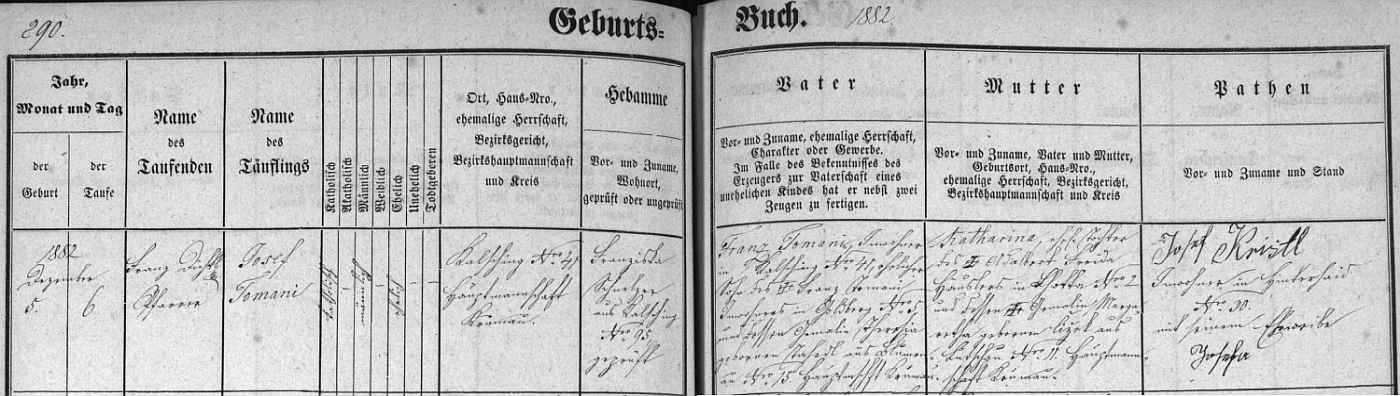 290.
Geburts=
Buch.
1882.
Jahr,
Monat und Tag
der
Geburt
der
Taufe
Name
des
Taufenden
Name
des
Täuflings
Katholisch
Akatholisch
Männlich
Weiblich
Ehelich
Unehelich
Todtgeboren
Ort, Haus-Nro.,
ehemalige Herrschaft,
Bezirksgericht,
Bezirkshauptmannschaft
und Kreis
Hebamme
Vor- und Zuname,
Wohnort,
geprüft oder ungeprüft
Vater
Vor- und Zuname, ehemalige Herrschaft,
Charakter oder Gewerbe.
Im Falle des Bekenntnisses des
Erzeugers zur Vaterschaft eines
unehelichen Kindes hat er nebst zwei
Zeugen zu fertigen.
Mutter
Vor- und Zuname, Vater und Mutter,
Geburtsort, Haus-Nro.,
ehemalige Herrschaft, Bezirksgericht,
Bezirkshauptmannschaft und Kreis
Pathen
Vor- und Zuname und Stand
1882
Dezember
5.
6.
Franz
Pfarrer
Josef
Tomani
katholisch
–
männlich
–
ehelich
–
–
Kalsching Nro 41
Hauptmannschaft
Krumau.
Franziska
Schnelzer
aus Kalsching
Nro 95
geprüft
Franz Tomani, Inwohner
in Kalsching Nro 41, ehelicher
Sohn des Franz Tomani
Inwohners in Goldberg Nro 5,
und dessen Gemalin Theresia
geborenen aus Blumen-
au Nro 15 Hauptmschft Krumau.
Katharina, ehel. Tochter
des Adalbert
Häuslers in Nro 2
und dessen Gemalin Marga-
retha geborenen aus
Nro 11. Hauptmann-
schaft Krumau.
Josef Kristl
Inwohner in Hinterhaid
Nro 30.
mit seinem Eheweibe
Josefa